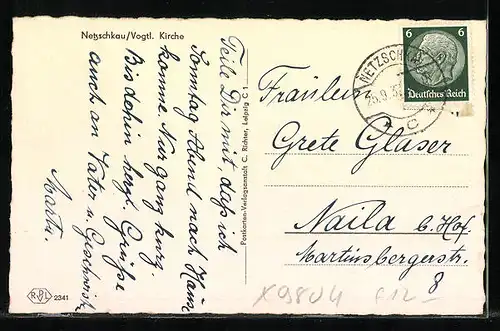 Netzschkau/Vogtl. Kirche
Teile Dir mit, daß ich
Sonntag Abend nach Hause
komme. Nur ganz kurz.
Bis dahin herzl. Grüße
auch an Vater u. Geschwister
Martin.
Postkarten-Verlagsanstalt C. Richter, Leipzig C 1
NETZSCHKAU
25.9.3
c
6 6
Deutsches Reich
Fräulein
Grete Glaser
Naila b. Hof.
Martinsbergerstr.
8
2341
X9804 F12-